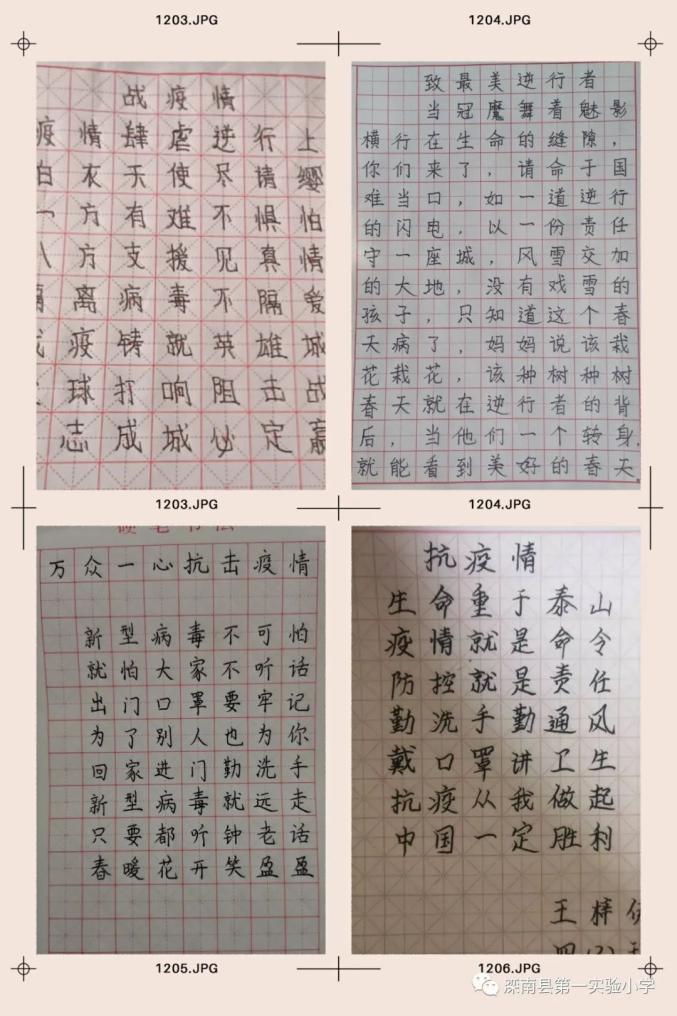 1203.JPG
1204.JPG
战疫情
疫情肆虐逆行上
白衣天使尽请缨
一方有难不惧怕
八方支援见真情
隔离病毒不隔爱
疫铸就英雄城
球打响阻击战
志成城必定赢
致最美逆行者
当冠魔舞着魅影
横行在生命的缝隙，
你们来了，请命于国
难当口，如一道逆行
的闪电，以一份责任
守一座城，风雪交加
的大地，没有戏雪的
孩子，只知道这个春
天病了，妈妈说该栽
花栽花，该种树种树
春天就在逆行者的背
后，当他们一个转身，
就能看到美好的春天
1203.JPG
1204.JPG
万众一心抗击疫情
新型病毒不可怕
就怕大家不听话
出门口罩要牢记
为了别人也为你
回家进门勤洗手
新型病毒就远走
只要都听钟老话
春暖花开笑盈盈
抗疫情
生命重于泰山
疫情就是命令
防控就是责任
勤洗手勤通风
戴口罩讲卫生
抗疫从我做起
中国一定胜利
王梓
1205.JPG
1206.JPG
滦南县第一实验小学